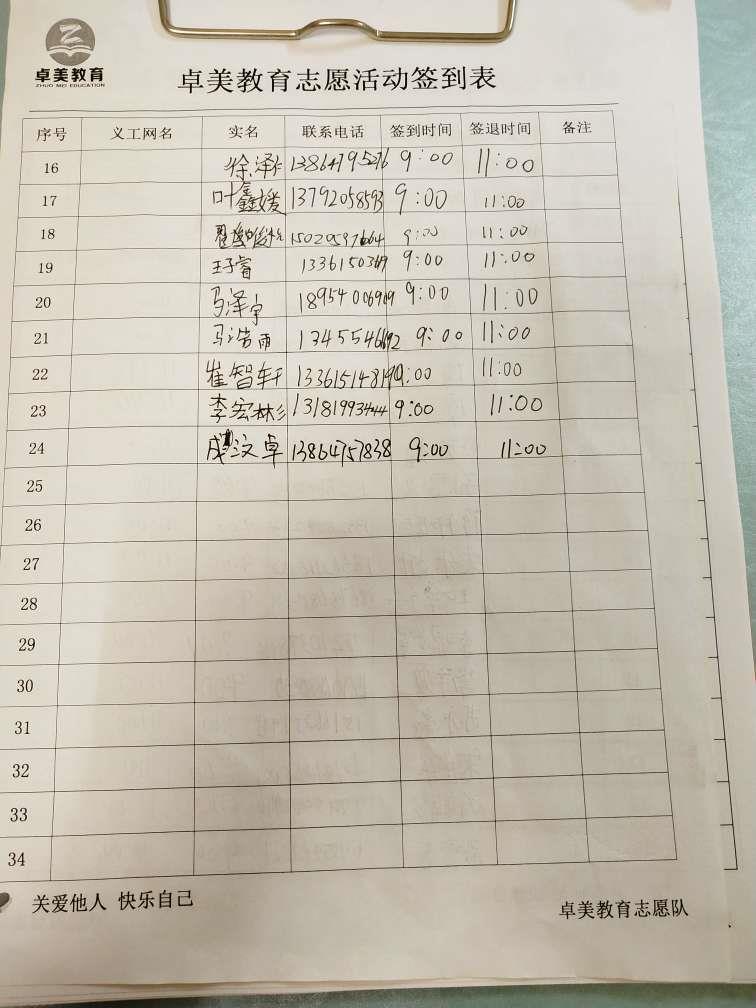 卓美教育
ZHUO MEI EDUCATION
卓美教育志愿活动签到表
序号 义工网名 实名 联系电话 签到时间 签退时间 备注
16 徐泽 13864795276 9:00 11:00
17 叶鑫媛 13792058593 9:00 11:00
18 15020597664 9:00 11:00
19 王子睿 9:00 11:00
20 马泽宇 9:00 11:00
21 马浩雨 9:00 11:00
22 崔智轩 9:00 11:00
23 李宏彬 13181993444 9:00 11:00
24 成汶卓 13864757838 9:00 11:00
25
26
27
28
29
30
31
32
33
34
关爱他人 快乐自己
卓美教育志愿队